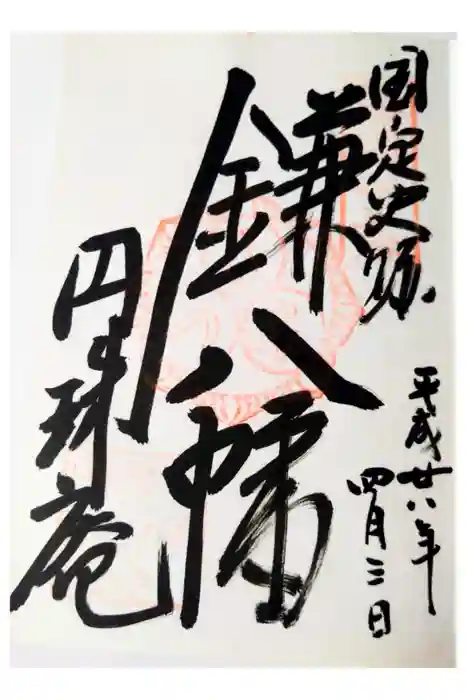 国定史跡
平成廿八年
四月三日
鎌八幡
円珠庵